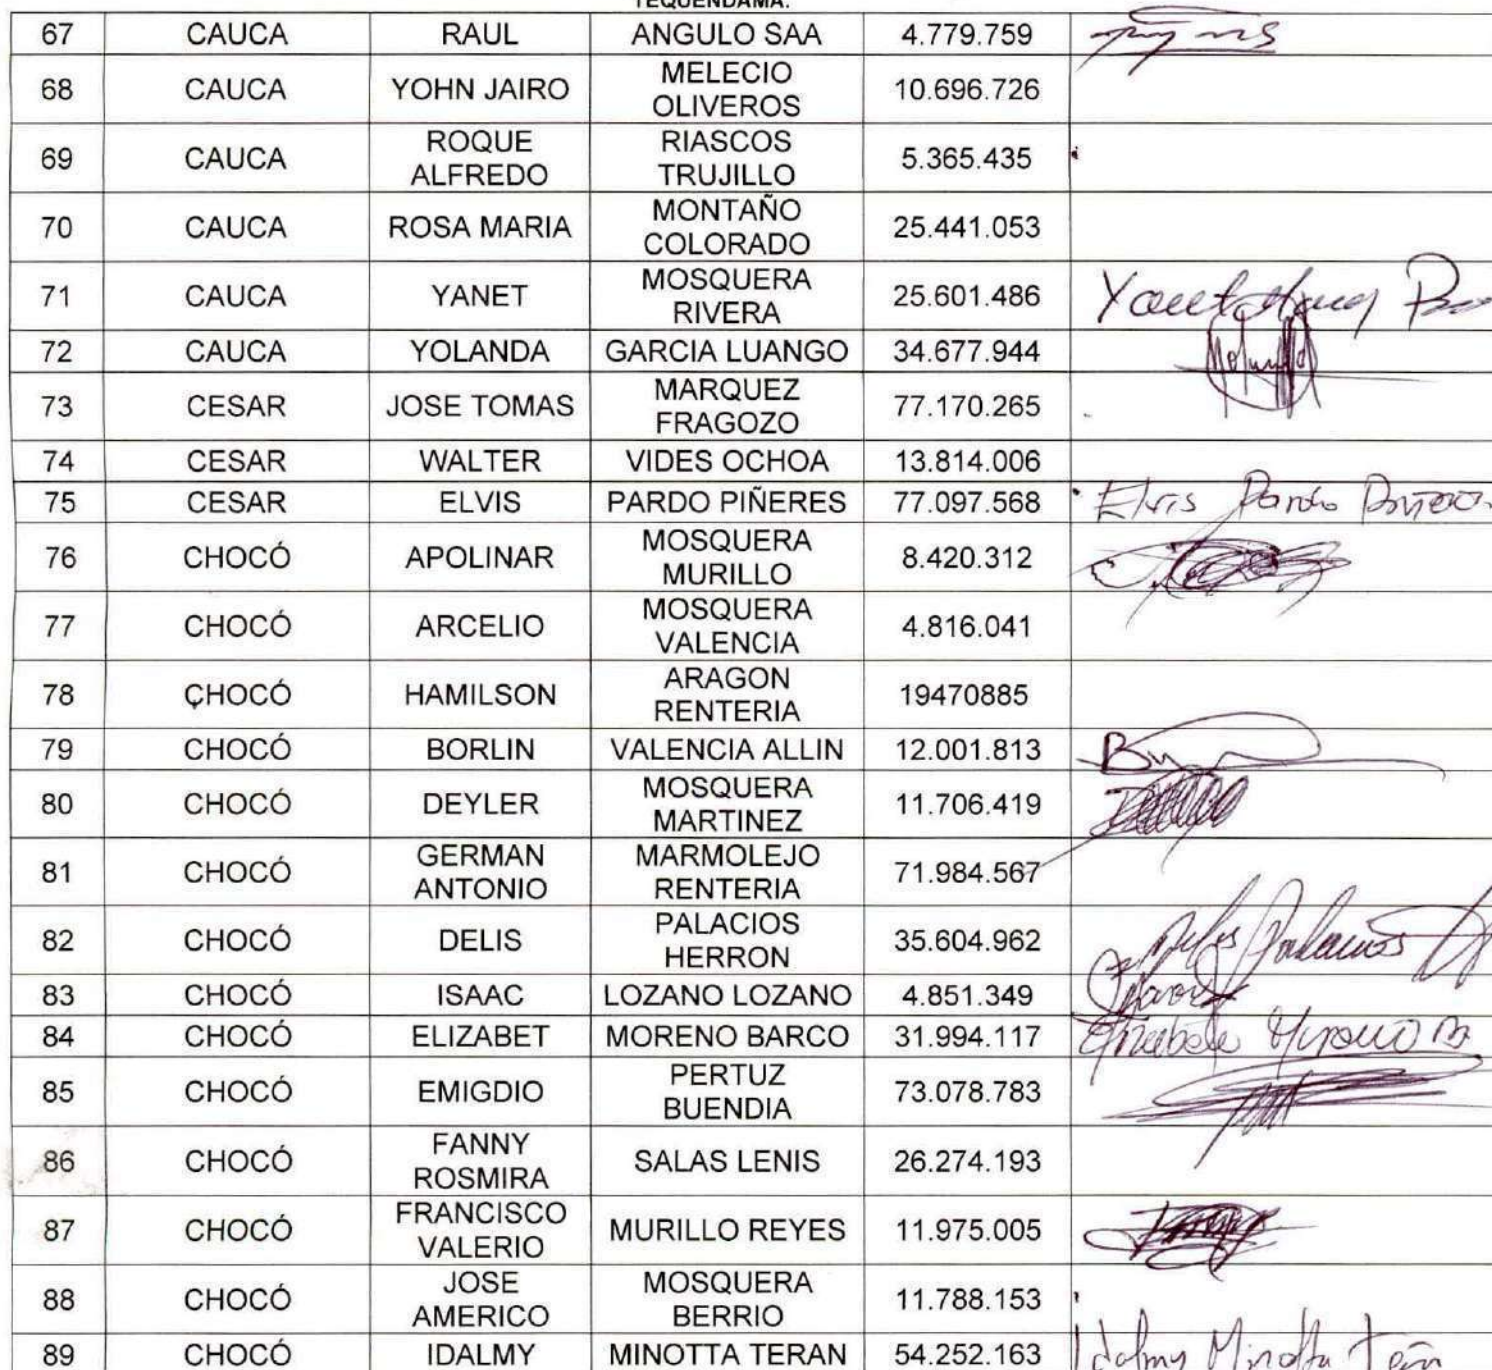 TEQUENDAMA.
67 CAUCA RAUL ANGULO SAA 4.779.759
68 CAUCA YOHN JAIRO MELECIO OLIVEROS 10.696.726
69 CAUCA ROQUE ALFREDO RIASCOS TRUJILLO 5.365.435
70 CAUCA ROSA MARIA MONTAÑO COLORADO 25.441.053
71 CAUCA YANET MOSQUERA RIVERA 25.601.486
72 CAUCA YOLANDA GARCIA LUANGO 34.677.944
73 CESAR JOSE TOMAS MARQUEZ FRAGOZO 77.170.265
74 CESAR WALTER VIDES OCHOA 13.814.006
75 CESAR ELVIS PARDO PIÑERES 77.097.568 Elvis Pardo
76 CHOCÓ APOLINAR MOSQUERA MURILLO 8.420.312
77 CHOCÓ ARCELIO MOSQUERA VALENCIA 4.816.041
78 CHOCÓ HAMILSON ARAGON RENTERIA 19470885
79 CHOCÓ BORLIN VALENCIA ALLIN 12.001.813
80 CHOCÓ DEYLER MOSQUERA MARTINEZ 11.706.419
81 CHOCÓ GERMAN ANTONIO MARMOLEJO RENTERIA 71.984.567
82 CHOCÓ DELIS PALACIOS HERRON 35.604.962 Delis Palacios
83 CHOCÓ ISAAC LOZANO LOZANO 4.851.349
84 CHOCÓ ELIZABET MORENO BARCO 31.994.117
85 CHOCÓ EMIGDIO PERTUZ BUENDIA 73.078.783
86 CHOCÓ FANNY ROSMIRA SALAS LENIS 26.274.193
87 CHOCÓ FRANCISCO VALERIO MURILLO REYES 11.975.005
88 CHOCÓ JOSE AMERICO MOSQUERA BERRIO 11.788.153
89 CHOCÓ IDALMY MINOTTA TERAN 54.252.163 Idalmy Minotta Terán